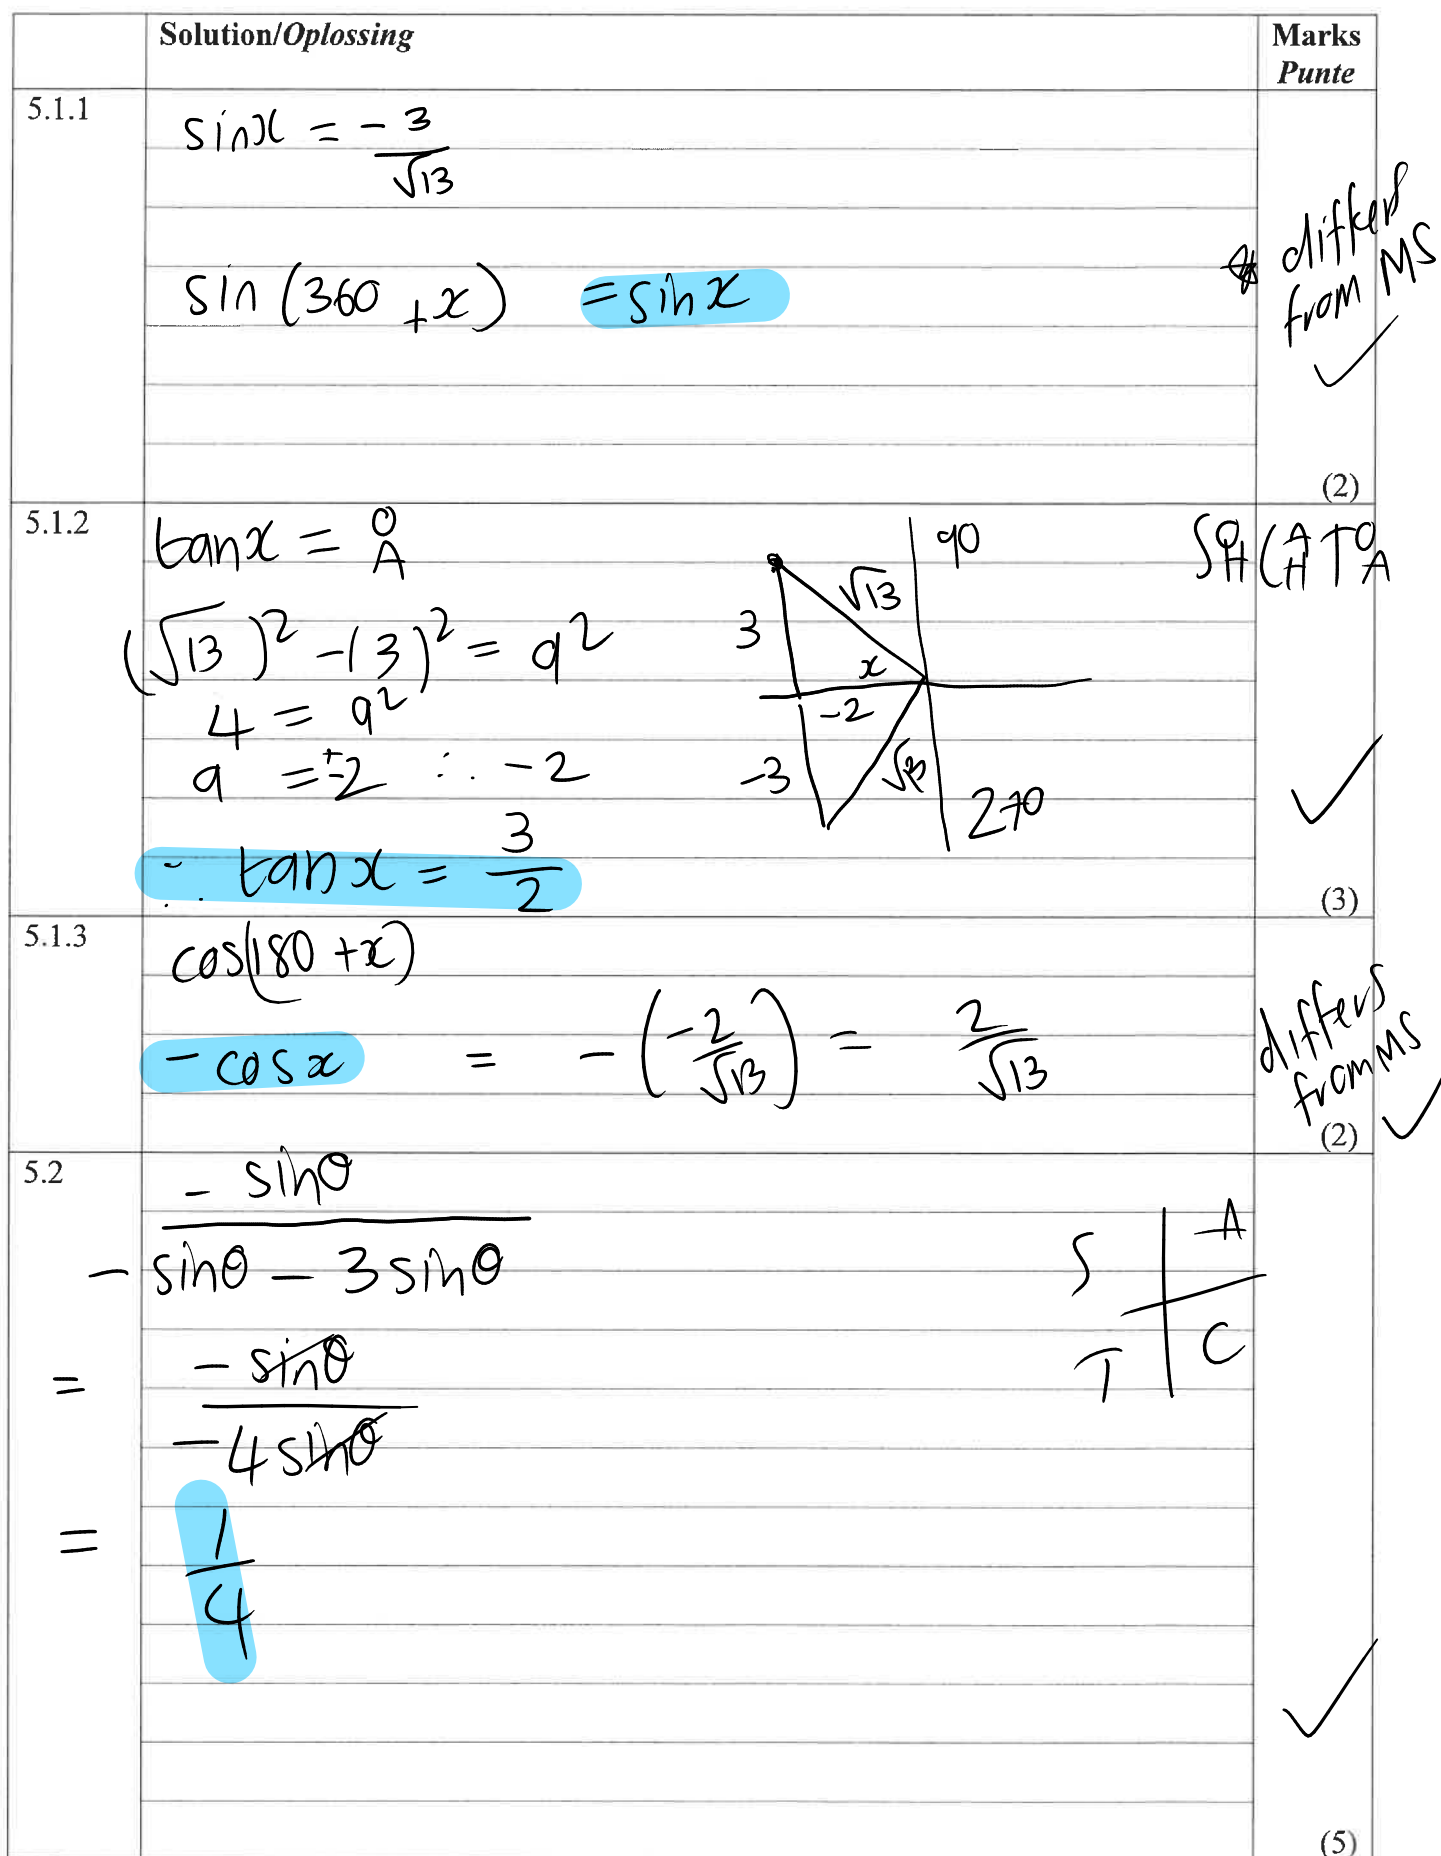 Solution/Oplossing
Marks
Punte
5.1.1
sinx = -3/√13
sin(360 + x) = sinx
* differs
from MS
✓
(2)
5.1.2
tanx = O/A
(√13)² - (3)² = a²
4 = a²
a = ±2 ∴ -2
∴ tanx = 3/2
90
√13
3
x
-2
-3
√13
270
S O/H C A/H T O/A
✓
(3)
5.1.3
cos(180 + x)
-cosx = -(-2/√13) = 2/√13
differs
from MS
✓
(2)
5.2
- sinθ
- sinθ - 3sinθ
= - sinθ
- 4sinθ
= 1/4
S A
T C
✓
(5)